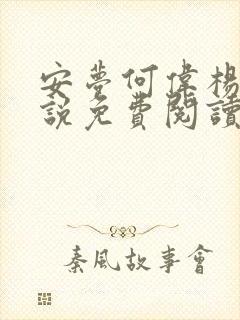 安夢何偉楊
說免費閱讀
秦風故事會